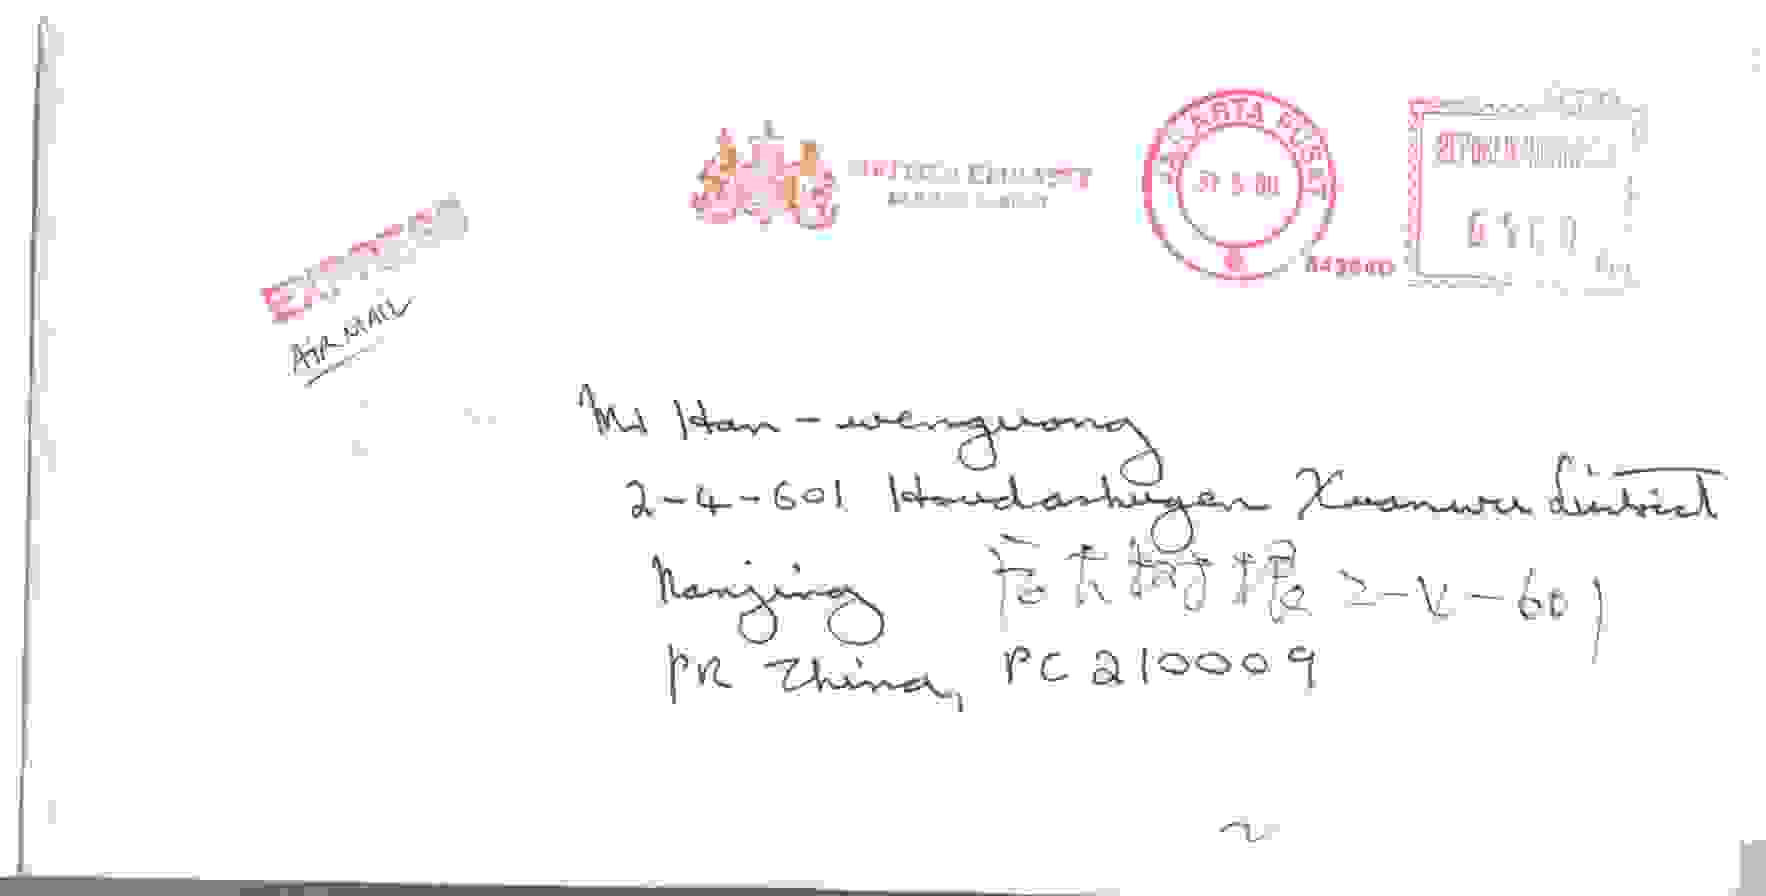 BRITISH EMBASSY
JAKARTA PUSAT
EXPRESS
AIR MAIL
Mr Han-wenguong
2-4-601 Houdashugen Xuanwu District
Nanjing 后大树根 2-4-601
PR China, PC 210009